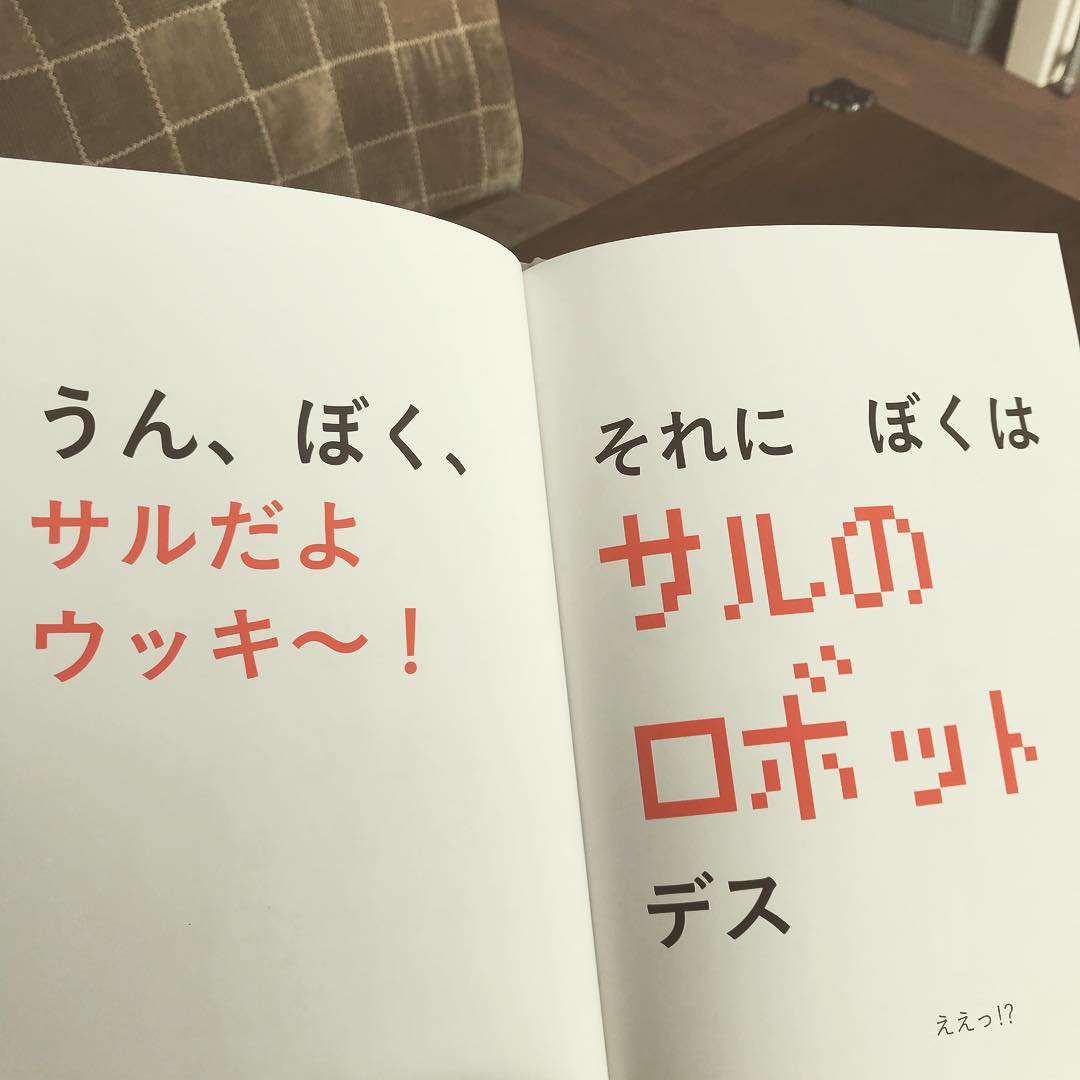 うん、ぼく、
サルだよ
ウッキ〜！
それに　ぼくは
サルの
ロボット
デス
ええっ!?